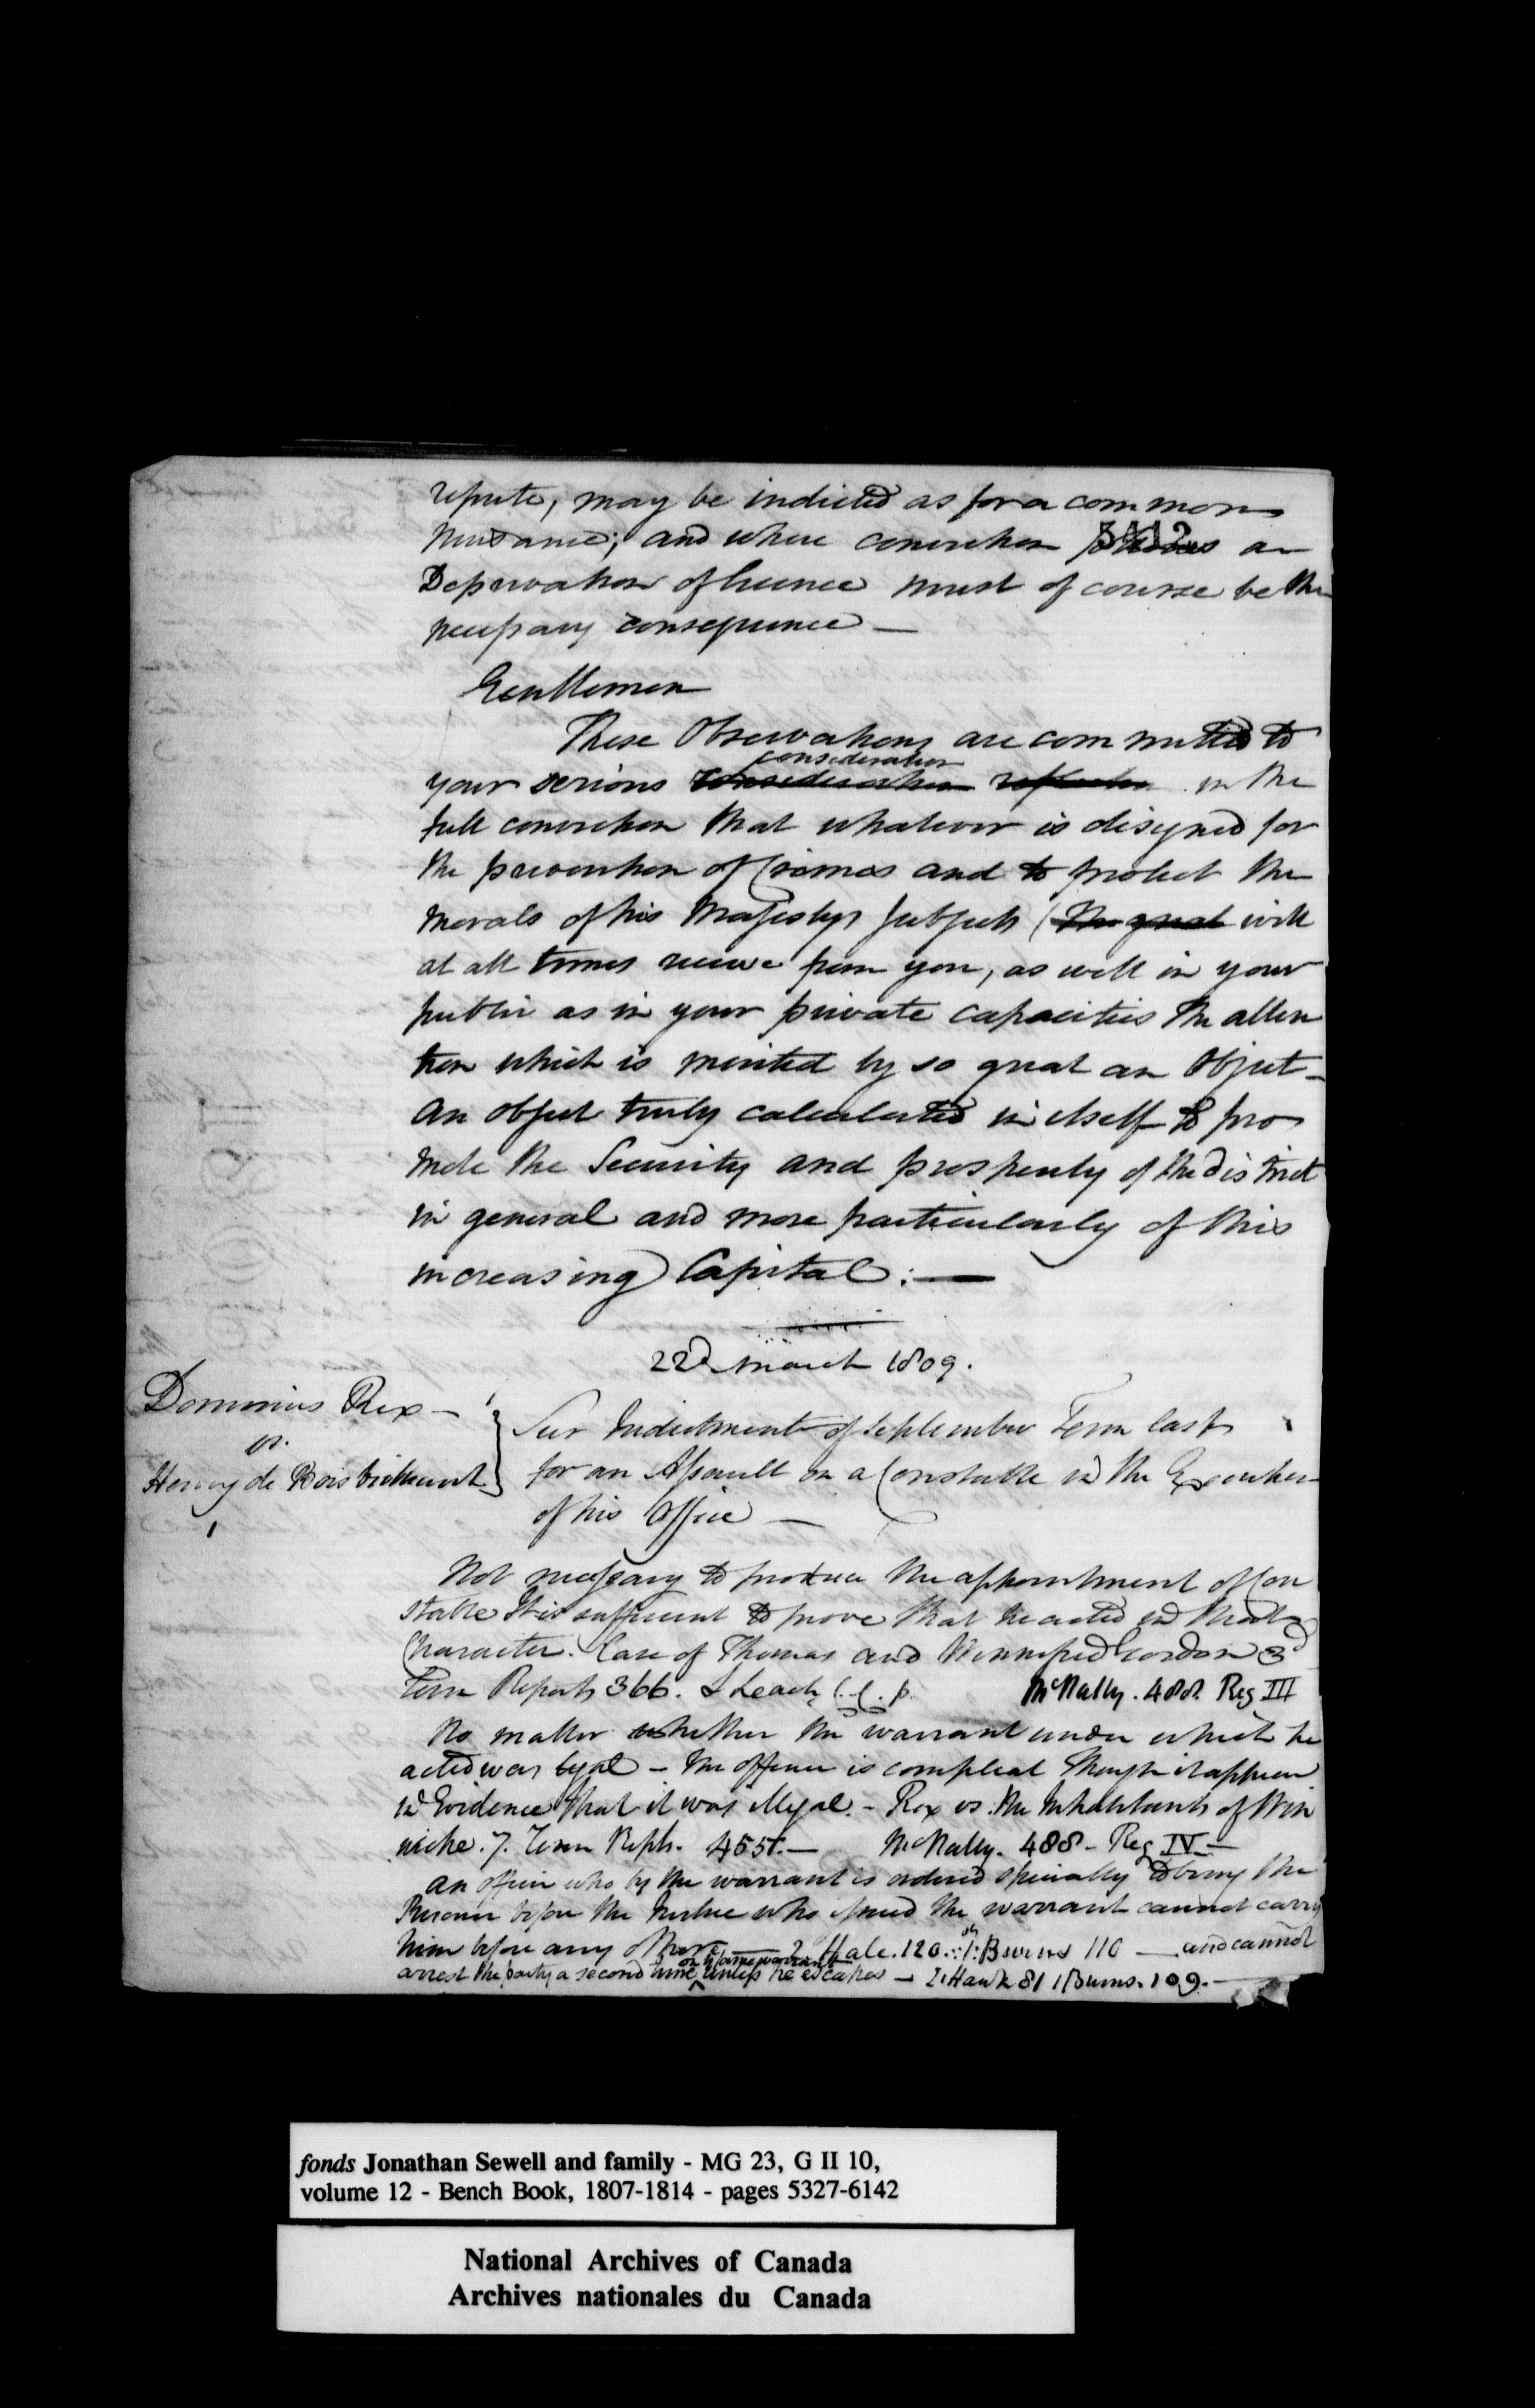 repute, may be indicted as for a common
Nuisance; and where conviction follows a
5412
Deprivation of licence must of course be the
necessary consequence —
Gentlemen
These Observations are committed to
consideration
your serious consideration reflection in the
full conviction that whatever is designed for
the prevention of Crimes and to protect the
Morals of his Majestys Subjects (the great will
at all times receive from you, as well in your
public as in your private capacities the atten
tion which is merited by so great an Object —
An object truly calculated in itself to pro
mote the Security and prosperity of the district
in general and more particularly of this
increasing Capital : —
22d March 1809.
Dominus Rex —
vs.
Henry de
Sur Indictment of September Term last
for an Assault on a Constable in the Execution
of his Office —
Not necessary to produce the appointment of Con
stable It is sufficient to prove that he acted in that
Character. Case of Thomas and Winnifred Gordon 3d
Term Reports 366. & Leach C.C. p. McNally. 488. Reg III
No matter whether the warrant under which he
acted was legal — the offence is compleat though it appear
in Evidence that it was illegal. — Rex vs. the Inhabitants of Win
wicke. 7. Term Repts. 455. — McNally. 488 — Reg IV —
An officer who by the warrant is ordered specially to bring the
Prisoner before the Justice who issued the warrant cannot carry
him before any other — 2 Hale. 120. 1. Burns 110 — and cannot
on ye same warrant
arrest the party a second time unless he escapes — 2. Hawk 81 1 Burns. 109. —
fonds Jonathan Sewell and family - MG 23, G II 10,
volume 12 - Bench Book, 1807-1814 - pages 5327-6142
National Archives of Canada
Archives nationales du Canada